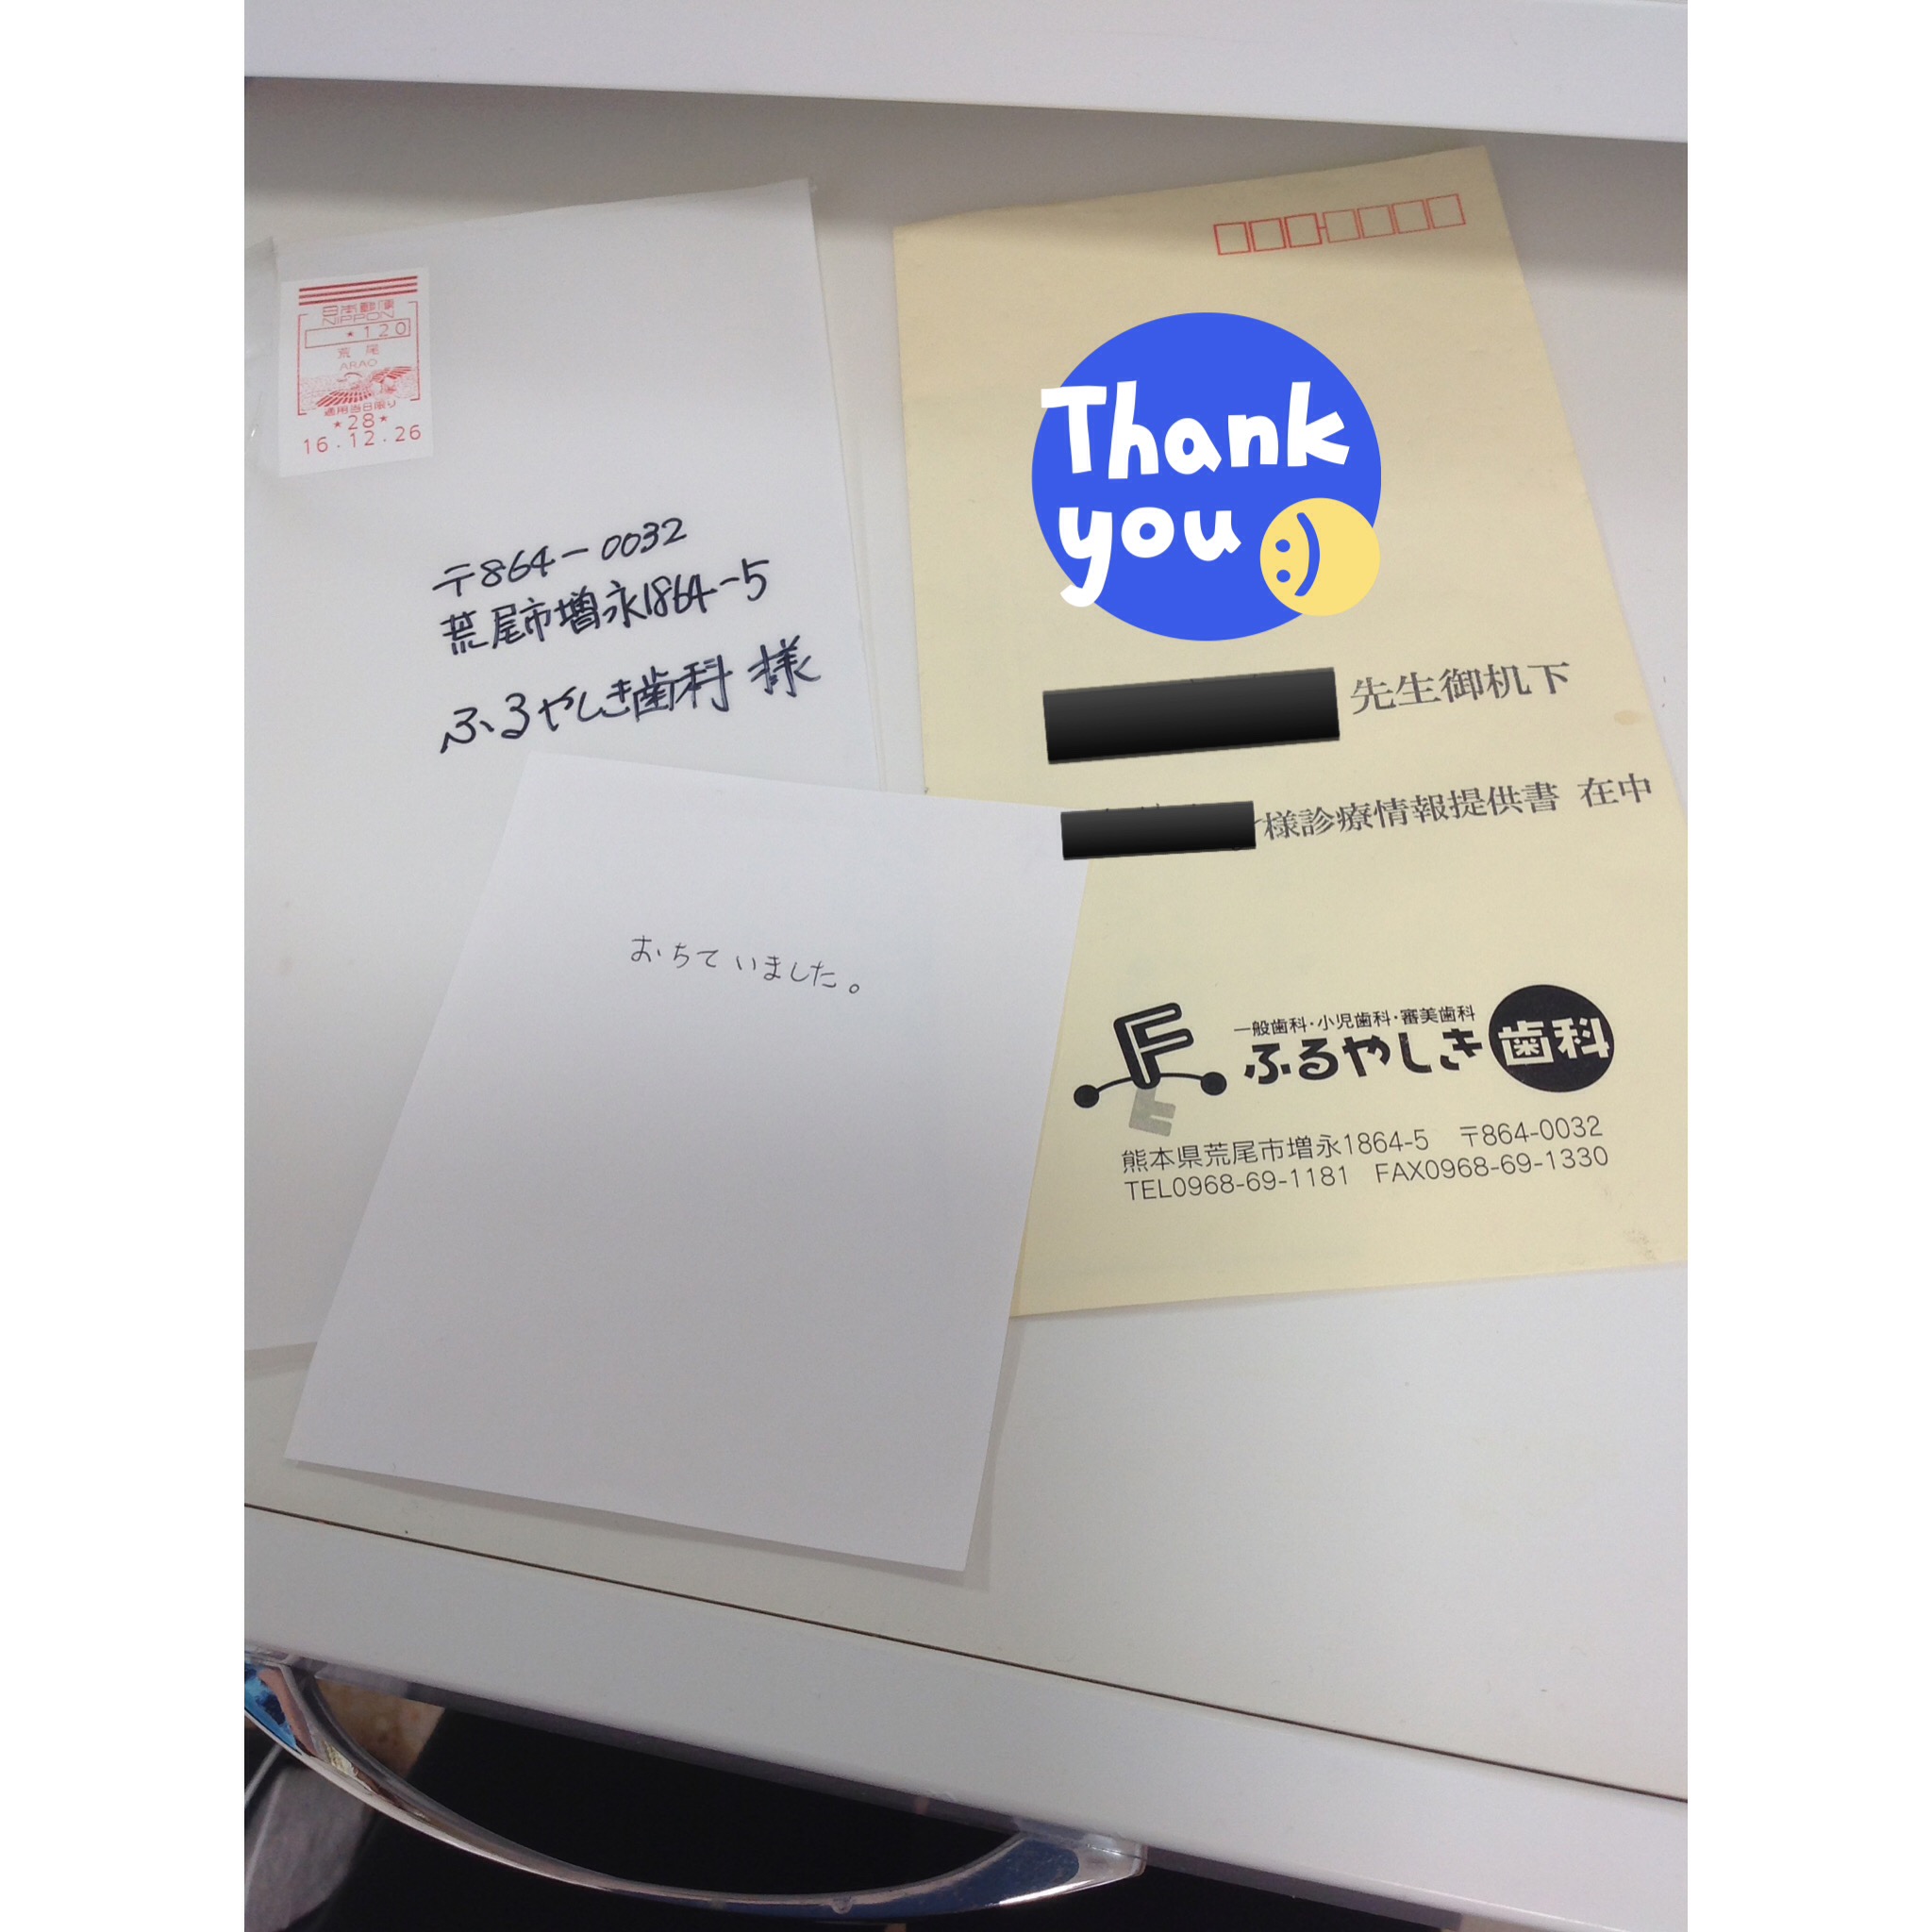 日本郵便
NIPPON
*120
荒尾
ARAO
適用当日限り
*28*
16.12.26
〒864-0032
荒尾市増永1864-5
ふるやしき歯科 様
おちていました。
Thank
you
:)
先生御机下
様診療情報提供書 在中
F
一般歯科・小児歯科・審美歯科
ふるやしき歯科
熊本県荒尾市増永1864-5 〒864-0032
TEL0968-69-1181 FAX0968-69-1330